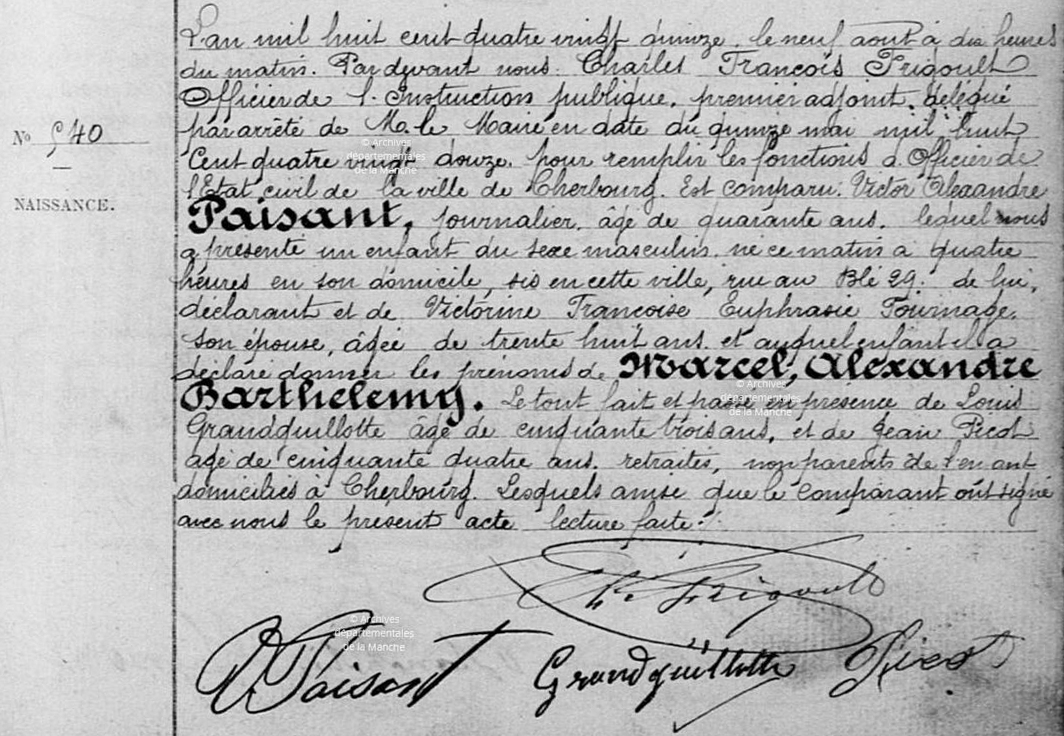 L'an mil huit cent quatre vingt quinze, le neuf aout à dix heures
du matin. Par devant nous. Charles François Frigoult
Officier de l'Instruction publique, premier adjoint, délégué
par arrêté de M. le Maire en date du quinze mai mil huit
Nº 540
Cent quatre vingt douze, pour remplir les fonctions d'Officier de
l'Etat civil de la ville de Cherbourg. Est comparu. Victor Alexandre
NAISSANCE.
Paisant, journalier, âgé de quarante ans, lequel nous
a présenté un enfant du sexe masculin, né ce matin à quatre
heures en son domicile, sis en cette ville, rue au Blé 29. de lui,
déclarant et de Victorine Françoise Euphrasie Tournage,
son épouse, âgée de trente huit ans. et auquel enfant il a
déclaré donner les prénoms de Marcel, Alexandre
Barthelemy. Le tout fait et passé en présence de Louis
Grandguillotte âgé de cinquante trois ans, et de Jean Picot
agé de cinquante quatre ans. retraités, non parents de l'enfant
domiciliés à Cherbourg. Lesquels ainsi que le comparant ont signé
avec nous le présent acte lecture faite.
Ch. Frigoult
V Paisant Grandguillotte Picot
© Archives
départementales
de la Manche
© Archives
départementales
de la Manche
© Archives
départementales
de la Manche